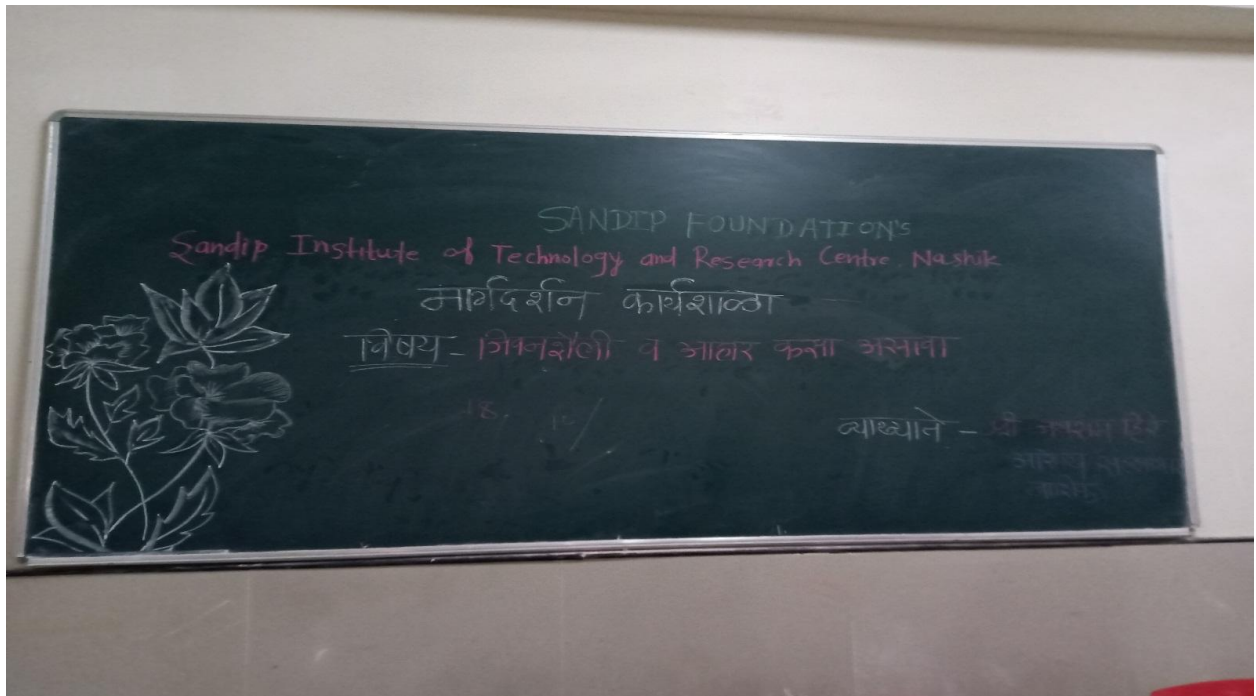 SANDIP FOUNDATION'S
Sandip Institute of Technology and Research Centre, Nashik
मार्गदर्शन कार्यशाळा
विषय - जिवनशैली व आहार कसा असावा
18. 10/
व्याख्याते - श्री हिरे
नाशिक